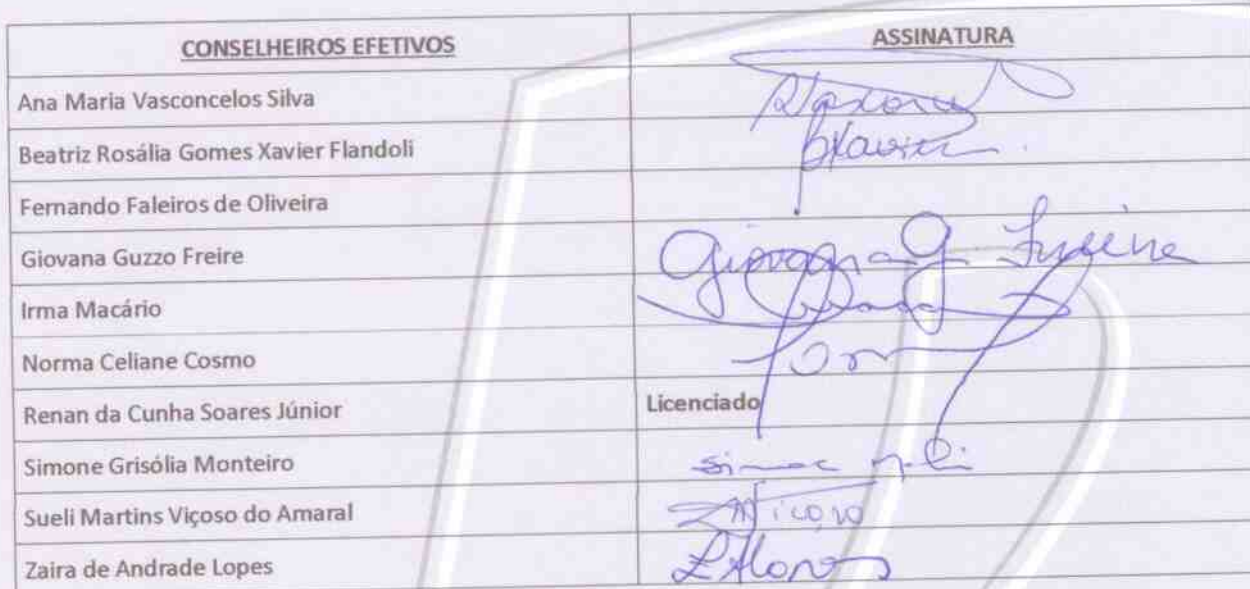 CONSELHEIROS EFETIVOS ASSINATURA
Ana Maria Vasconcelos Silva
Beatriz Rosália Gomes Xavier Flandoli BXavier
Fernando Faleiros de Oliveira
Giovana Guzzo Freire Giovana G. Freire
Irma Macário
Norma Celiane Cosmo
Renan da Cunha Soares Júnior Licenciado
Simone Grisólia Monteiro
Sueli Martins Viçoso do Amaral
Zaira de Andrade Lopes